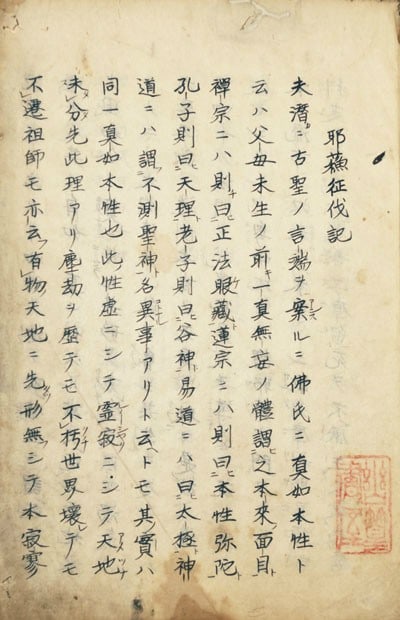 耶蘓征伐記
夫濳ニ古聖ノ言端ヲ案ルニ佛氏ニ真如本性ト
云ハ父母未生ノ前キ一真無妄ノ體謂之本來面目
禪宗ニハ則曰正法眼藏蓮宗ニハ則曰本性弥陀
孔子則曰天理老子則曰谷神易道ニハ曰太極神
道ニハ謂不測聖神名異事アリト云トモ其實ハ
同一真如本性也此性虚ニシテ霊寂ニシテ天地
未分先此理アリ塵劫ヲ歴テモ不朽世界壊テモ
不遷祖師モ亦云有物天地ニ先形無シテ本寂寥